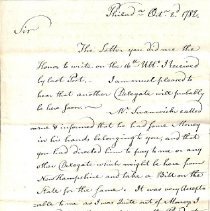 Philad.ª Oct.r 2.d 1782
Sir
The Letter you did me the
Honor to write on the 4th Ult.o I received
by last Post. I am much pleased to
hear that another Delegate will probably
be here soon — Mr. Swanwick called
on me & informed that he had some Money
in his hands belonging to you; and that
you had directed him to pay me or any
other Delegate which might be here from
New Hampshire and take a Bill on the
State for the same. It was very accept-
able to me as I was quite out of Money I